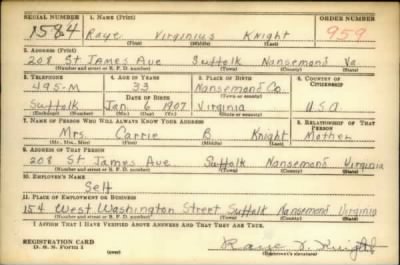 SERIAL NUMBER 1. NAME (Print) ORDER NUMBER
1584 Raye Virginius Knight 959
(First) (Middle) (Last)
2. ADDRESS (Print)
208 St James Ave Suffolk Nansemond Va
(Number and street or R. F. D. number) (Town) (County) (State)
3. TELEPHONE 4. AGE IN YEARS 5. PLACE OF BIRTH 6. COUNTRY OF CITIZENSHIP
495-M 33 Nansemond Co.
DATE OF BIRTH (Town or county)
Suffolk Jan 6 1907 Virginia U.S.A.
(Exchange) (Number) (Mo.) (Day) (Yr.) (State or country)
7. NAME OF PERSON WHO WILL ALWAYS KNOW YOUR ADDRESS 8. RELATIONSHIP OF THAT PERSON
Mrs. Carrie B Knight Mother
(Mr., Mrs., Miss) (First) (Middle) (Last)
9. ADDRESS OF THAT PERSON
208 St James Ave Suffolk Nansemond Virginia
(Number and street or R. F. D. number) (Town) (County) (State)
10. EMPLOYER'S NAME
Self
11. PLACE OF EMPLOYMENT OR BUSINESS
154 West Washington Street Suffolk Nansemond Virginia
(Number and street or R. F. D. number) (Town) (County) (State)
I AFFIRM THAT I HAVE VERIFIED ABOVE ANSWERS AND THAT THEY ARE TRUE.
REGISTRATION CARD
D. S. S. Form 1 (over) Raye V. Knight
(Registrant's signature)